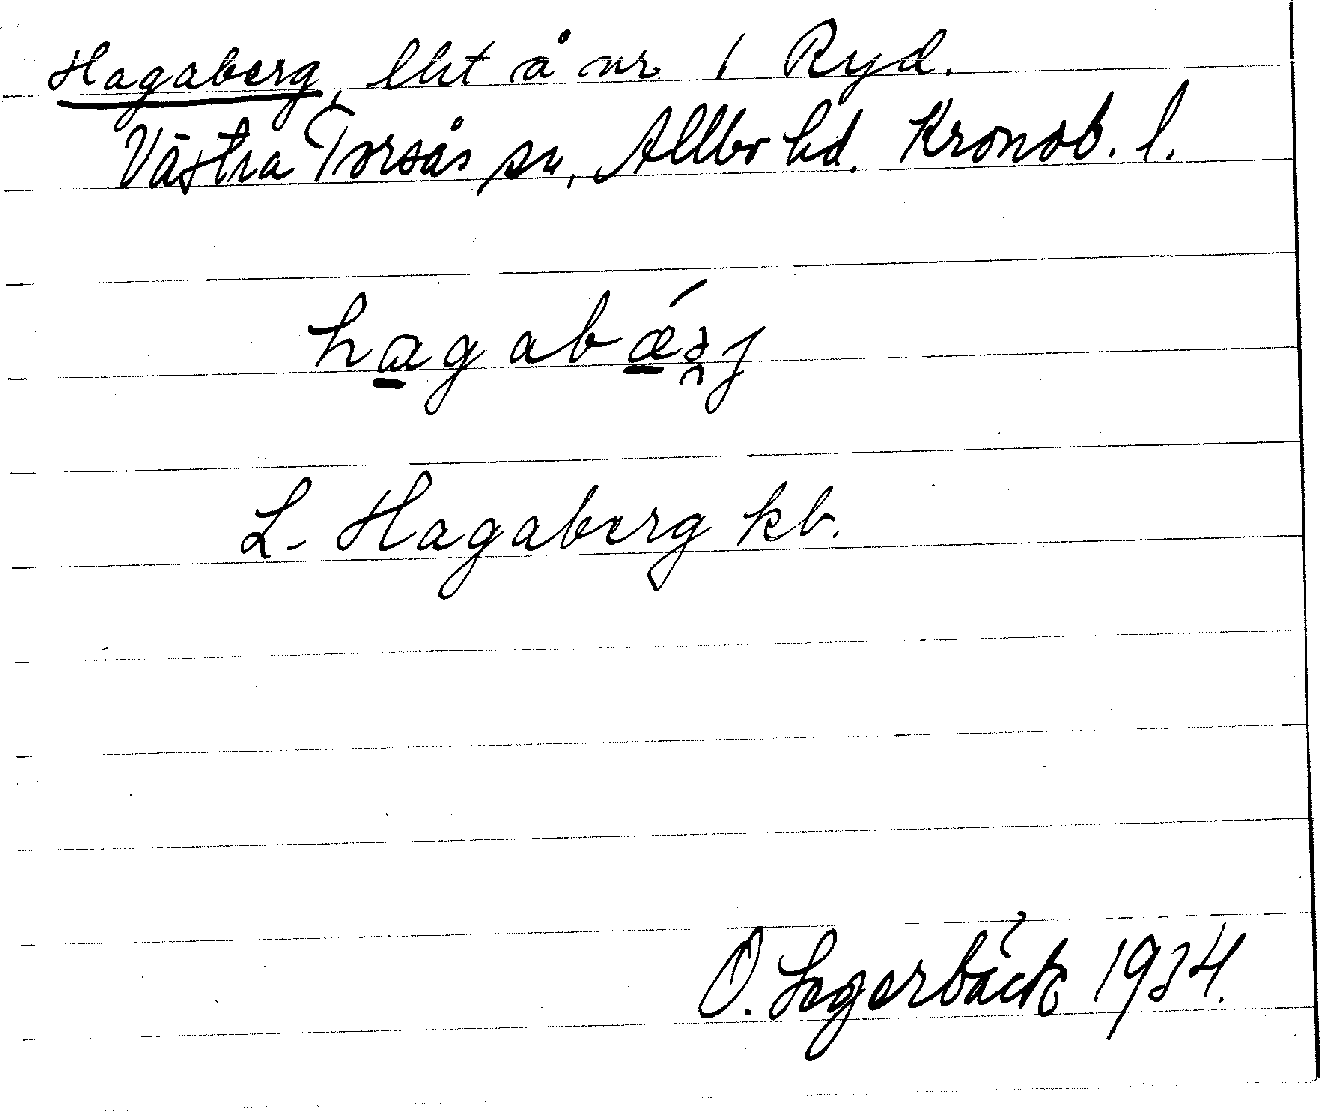 Hagaberg, lht å nr 1 Ryd.
Västra Torsås sn, Allbo hd. Kronob. l.
hagabǽrj
L. Hagaberg kb.
O. Legerbäck 1934.